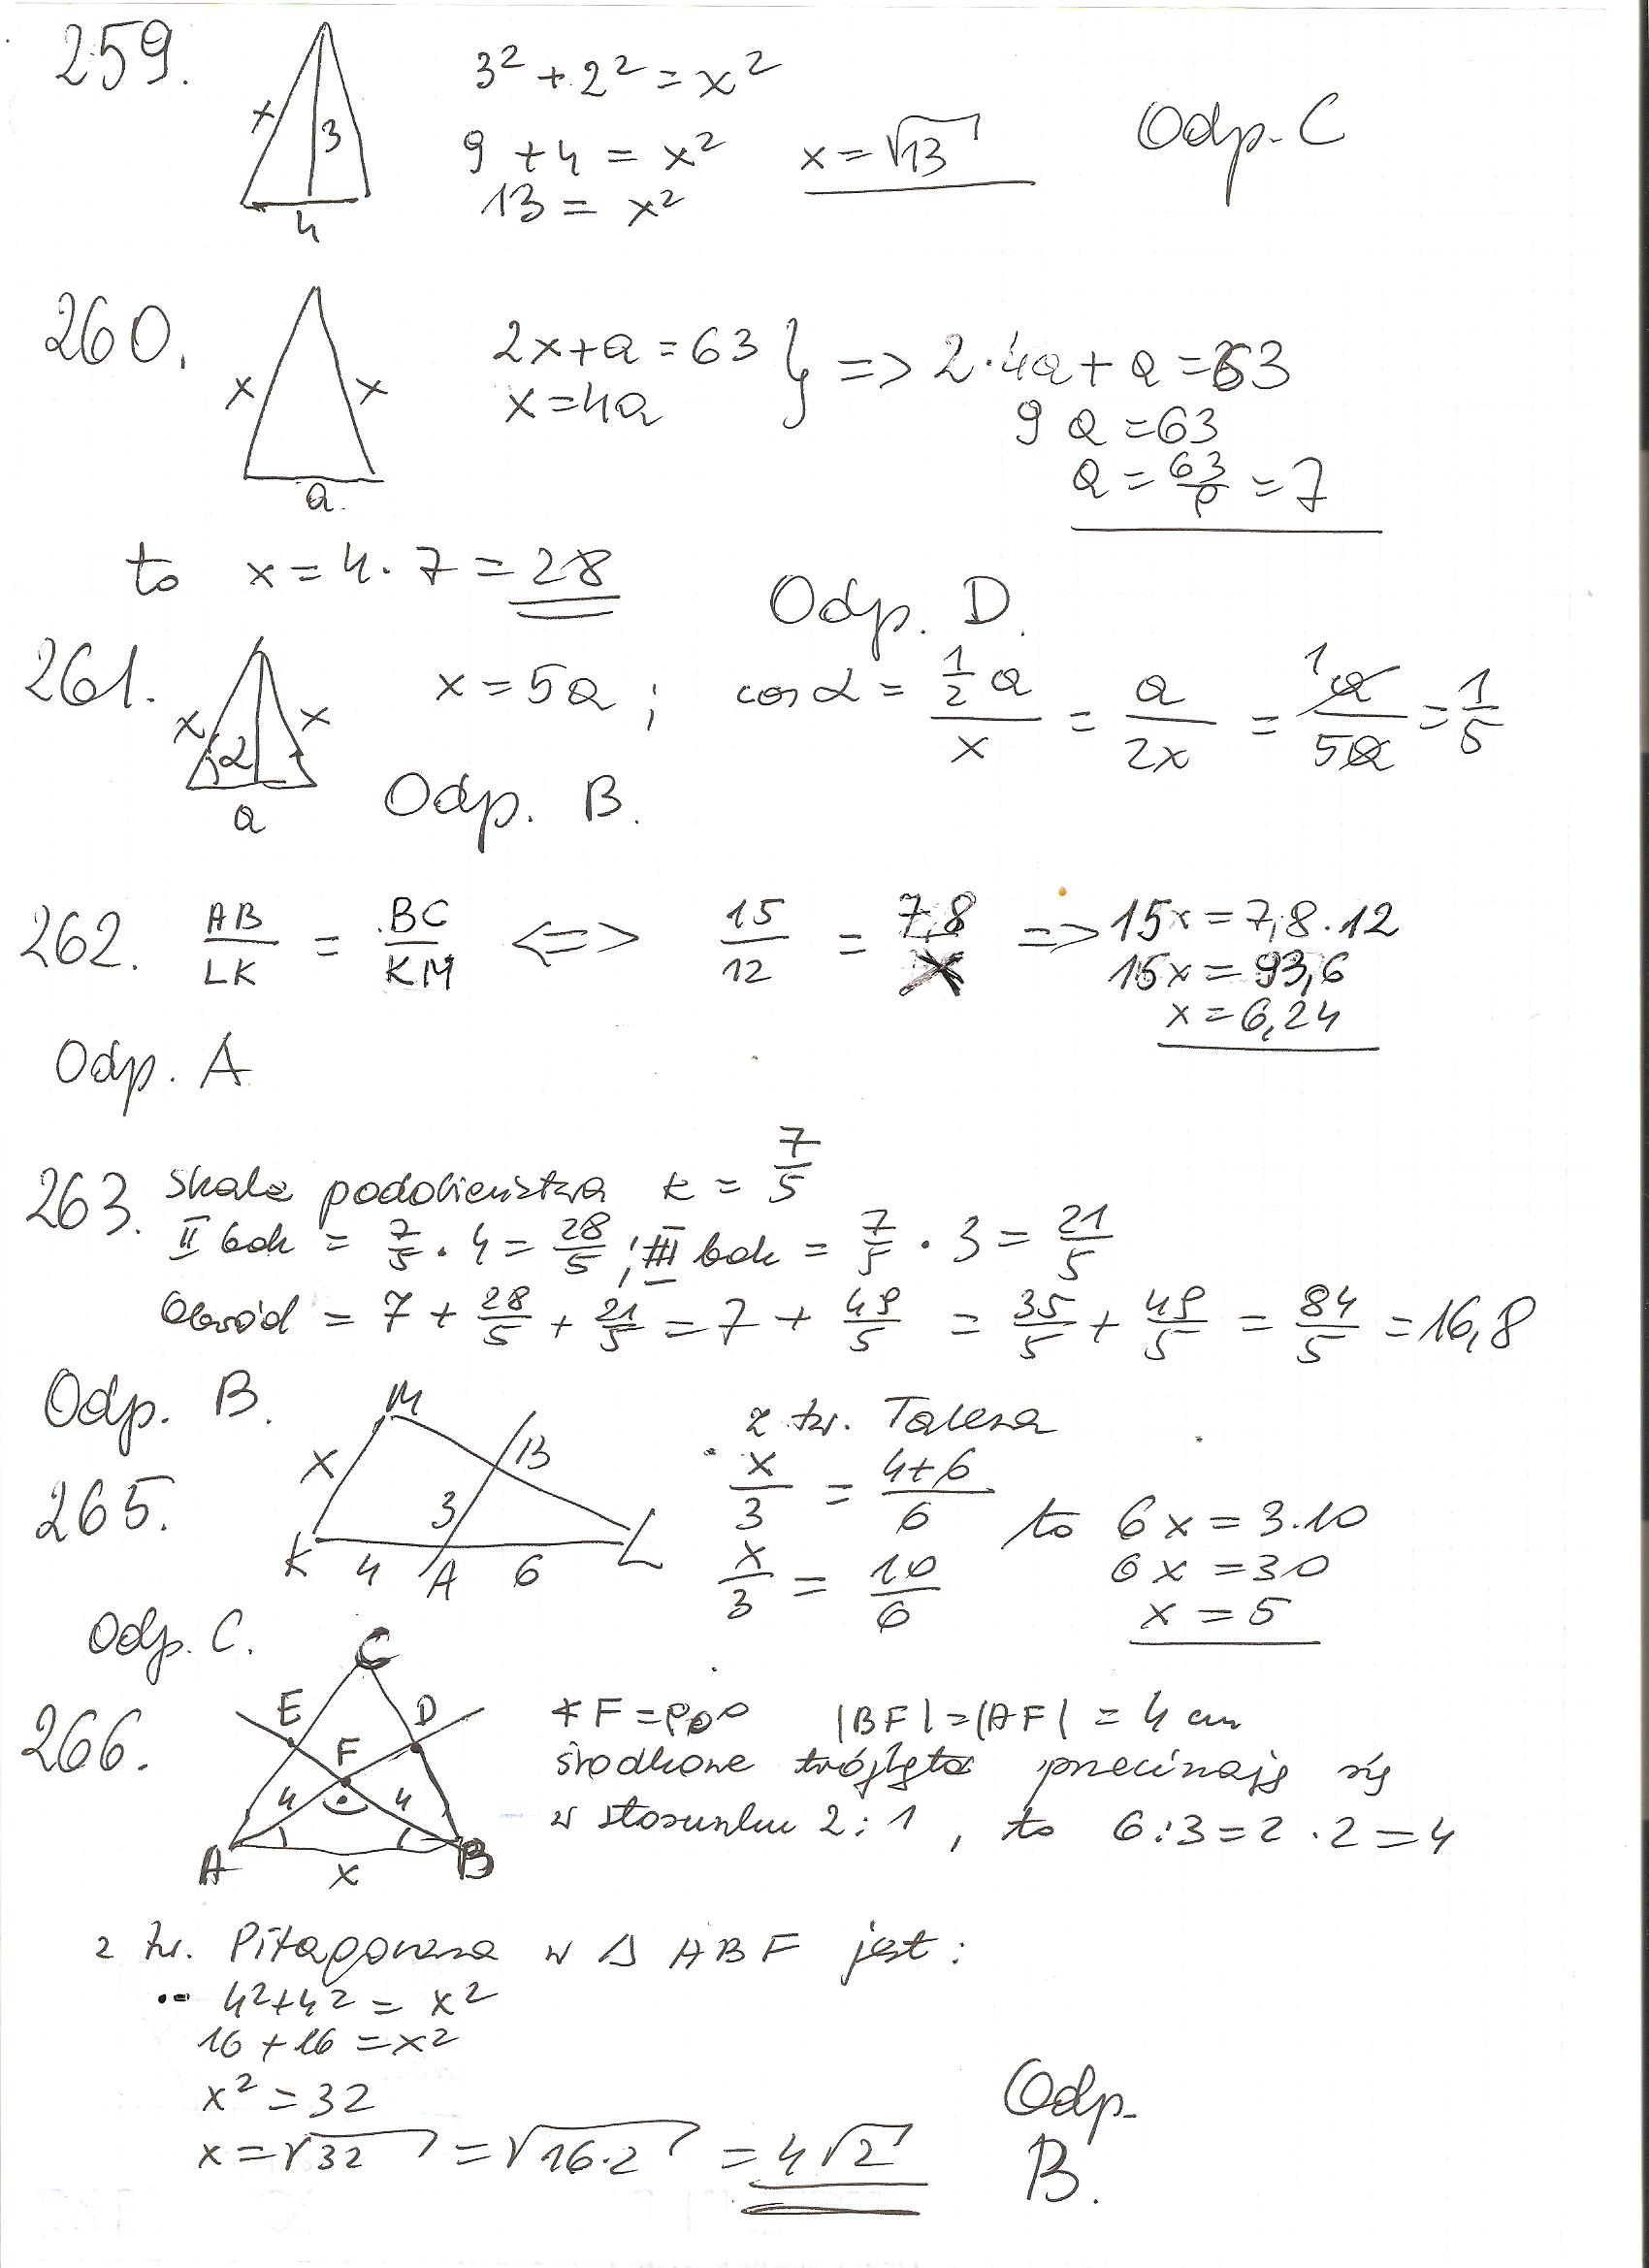 259.
x 3 4
3² + 2² = x²
9 + 4 = x²
13 = x²
x = √13
Odp. C
260.
x x a
2x + a = 63
x = 4a
} => 2·4a + a = 63
9a = 63
a = 63/9 = 7
to x = 4·7 = 28
Odp. D.
261.
x x α a
x = 5a ; cos α = ½a / x = a / 2x = a / 5a = 1/5
Odp. B.
262. AB/LK = BC/KM <=> 15/12 = 7,8/x => 15x = 7,8·12
15x = 93,6
x = 6,24
Odp. A
263. skala podobieństwa k = 7/5
II bok = 7/5 · 4 = 28/5 ; III bok = 7/5 · 3 = 21/5
Obwód = 7 + 28/5 + 21/5 = 7 + 49/5 = 35/5 + 49/5 = 84/5 = 16,8
Odp. B.
265.
M x B 3 K 4 A 6 L
z tw. Talesa
x/3 = 4+6/6
x/3 = 10/6
to 6x = 3·10
6x = 30
x = 5
Odp. C.
266.
C E D F 4 4 A x B
∢F = 90° |BF| = |AF| = 4 cm
środkowe trójkąta przecinają się
w stosunku 2:1, to 6:3 = 2·2 = 4
z tw. Pitagorasa w Δ ABF jest:
4² + 4² = x²
16 + 16 = x²
x² = 32
x = √32 = √16·2 = 4√2
Odp.
B.